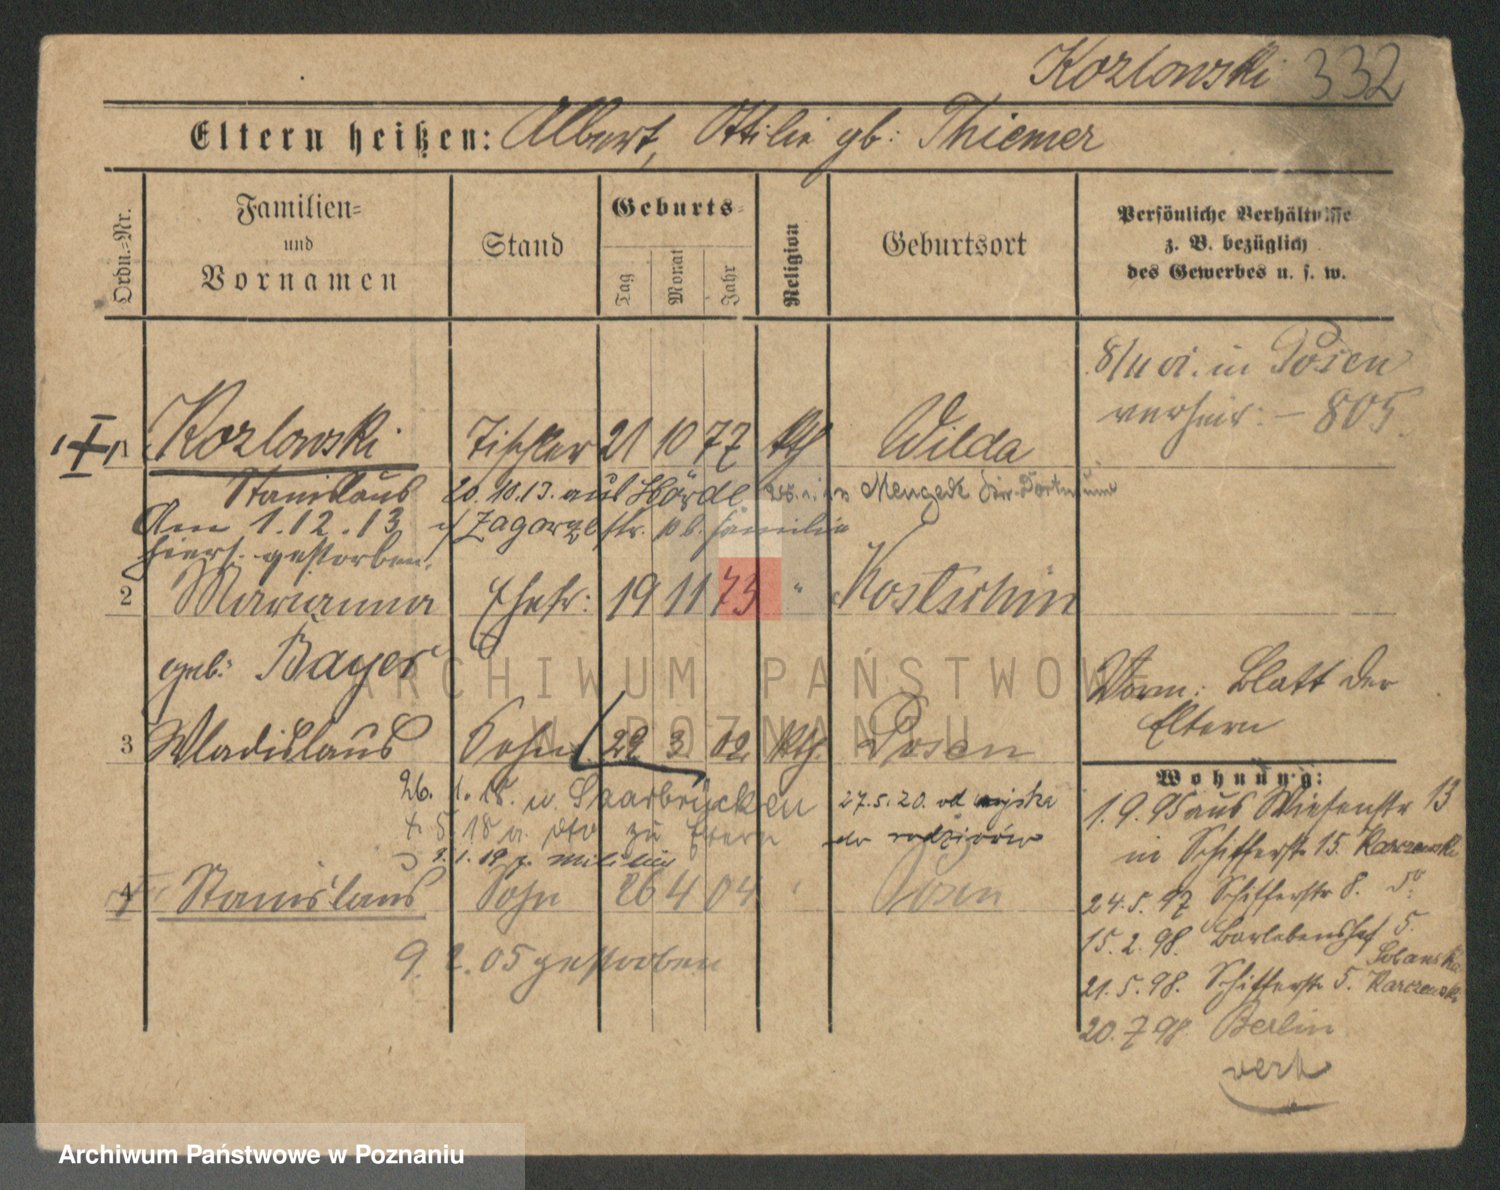 Kozlowski 332
Eltern heißen: Albert, Ottilie gb: Thiemer
Ordn.=Nr.
Familien=
und
Vornamen
Stand
Geburts=
Tag
Monat
Jahr
Religion
Geburtsort
Persönliche Verhältnisse
z. B. bezüglich
des Gewerbes u. s. w.
8/11 01. in Posen
verheir: – 805.
1 Kozlowski Tischler 21 10 77 kth Wilda
Stanislaus 20.10.13. aus Hörde Mengede Dortmund
Am 1.12.13 Zagorzestr. Familie
hiers. gestorben.
2 Marianna Ehefr: 19 11 73 " Kostschin
geb: Bayer
Vorm: Blatt der
Eltern
3 Wladislaus Sohn 29 3 02 kth. Posen
Wohnung:
26. 1. 18. n. Saarbrücken 27.5.20. od wojska
do rodziców
5. 18 a. dto zu Eltern
3.1.19. z. Militär
4 Stanislaus Sohn 26 4 04 Posen
9. 2. 05 gestorben
1.9.95 aus Wiesenstr 13
in Schifferstr 15. Karczewski
24.5.97 Schifferstr 8. do
15.2.98. Barlebenshof 5.
21.5.98. Schifferstr 5. Karczewski
20.7.98. Berlin
verh
ARCHIWUM PAŃSTWOWE
W POZNANIU
Archiwum Państwowe w Poznaniu